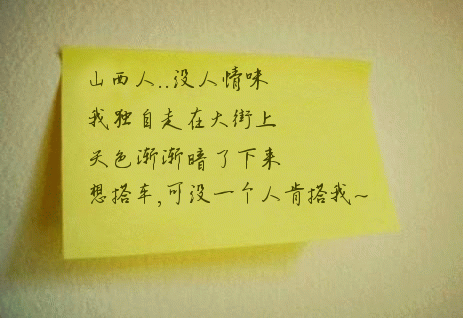 山西人..没人情味
我独自走在大街上
天色渐渐暗了下来
想搭车,可没一个人肯搭我~